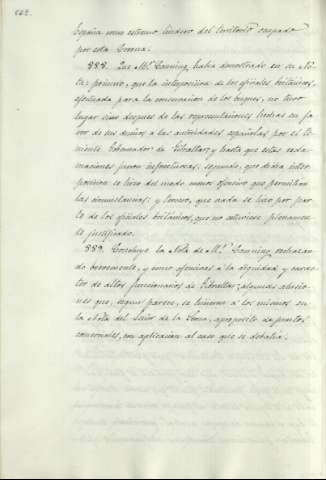 España como estremo lindero del territorio ocupado
por esta Corona.
888. Que Mr. Canning había demostrado en su No-
ta: primero, que la interposicion de los oficiales britanicos,
efectuada para la conservacion de los buques, no tuvo
lugar sino despues de las representaciones hechas en fa-
vor de sus dueños a las autoridades españolas por el te-
niente Gobernador de Gibraltar, y hasta que estas recla-
maciones fueron infructuosas; segundo, que dicha inter-
posicion se hizo del modo menos ofensivo que permitian
las circunstancias; y tercero, que nada se hizo por par-
te de los oficiales britanicos, que no estuviese plenamen-
te justificado.
889. Concluye la Nota de Mr. Canning rechazan-
do severamente, y como ofensivas a la dignidad y carac-
ter de altos funcionarios de Gibraltar, algunas alusio-
nes que, segun parece, se hicieron a los mismos en
la Nota del Señor de la Torre, a proposito de puntos
comerciales, con aplicacion al caso que se debatia.